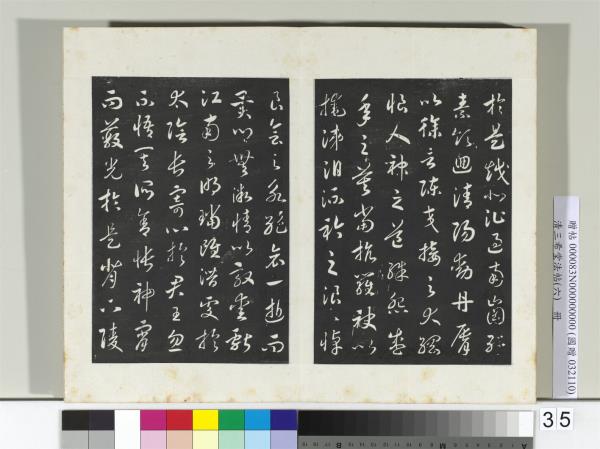 於是越北沚過南岡紆
素領迴清陽動丹脣
以徐言陳交接之大綱
恨人神之道殊怨盛
年之莫當抗羅袂以
掩涕泪流衿之浪〻悼
良會之永絕哀一逝而
異鄉無微情以效愛獻
江南之明璫雖潛處於
太陰長寄心於君王忽
不悟其所舍悵神宵
而蔽光於是背下陵
贈帖 000083N000000000 (國贈 032110)
清三希堂法帖(六) 冊
35